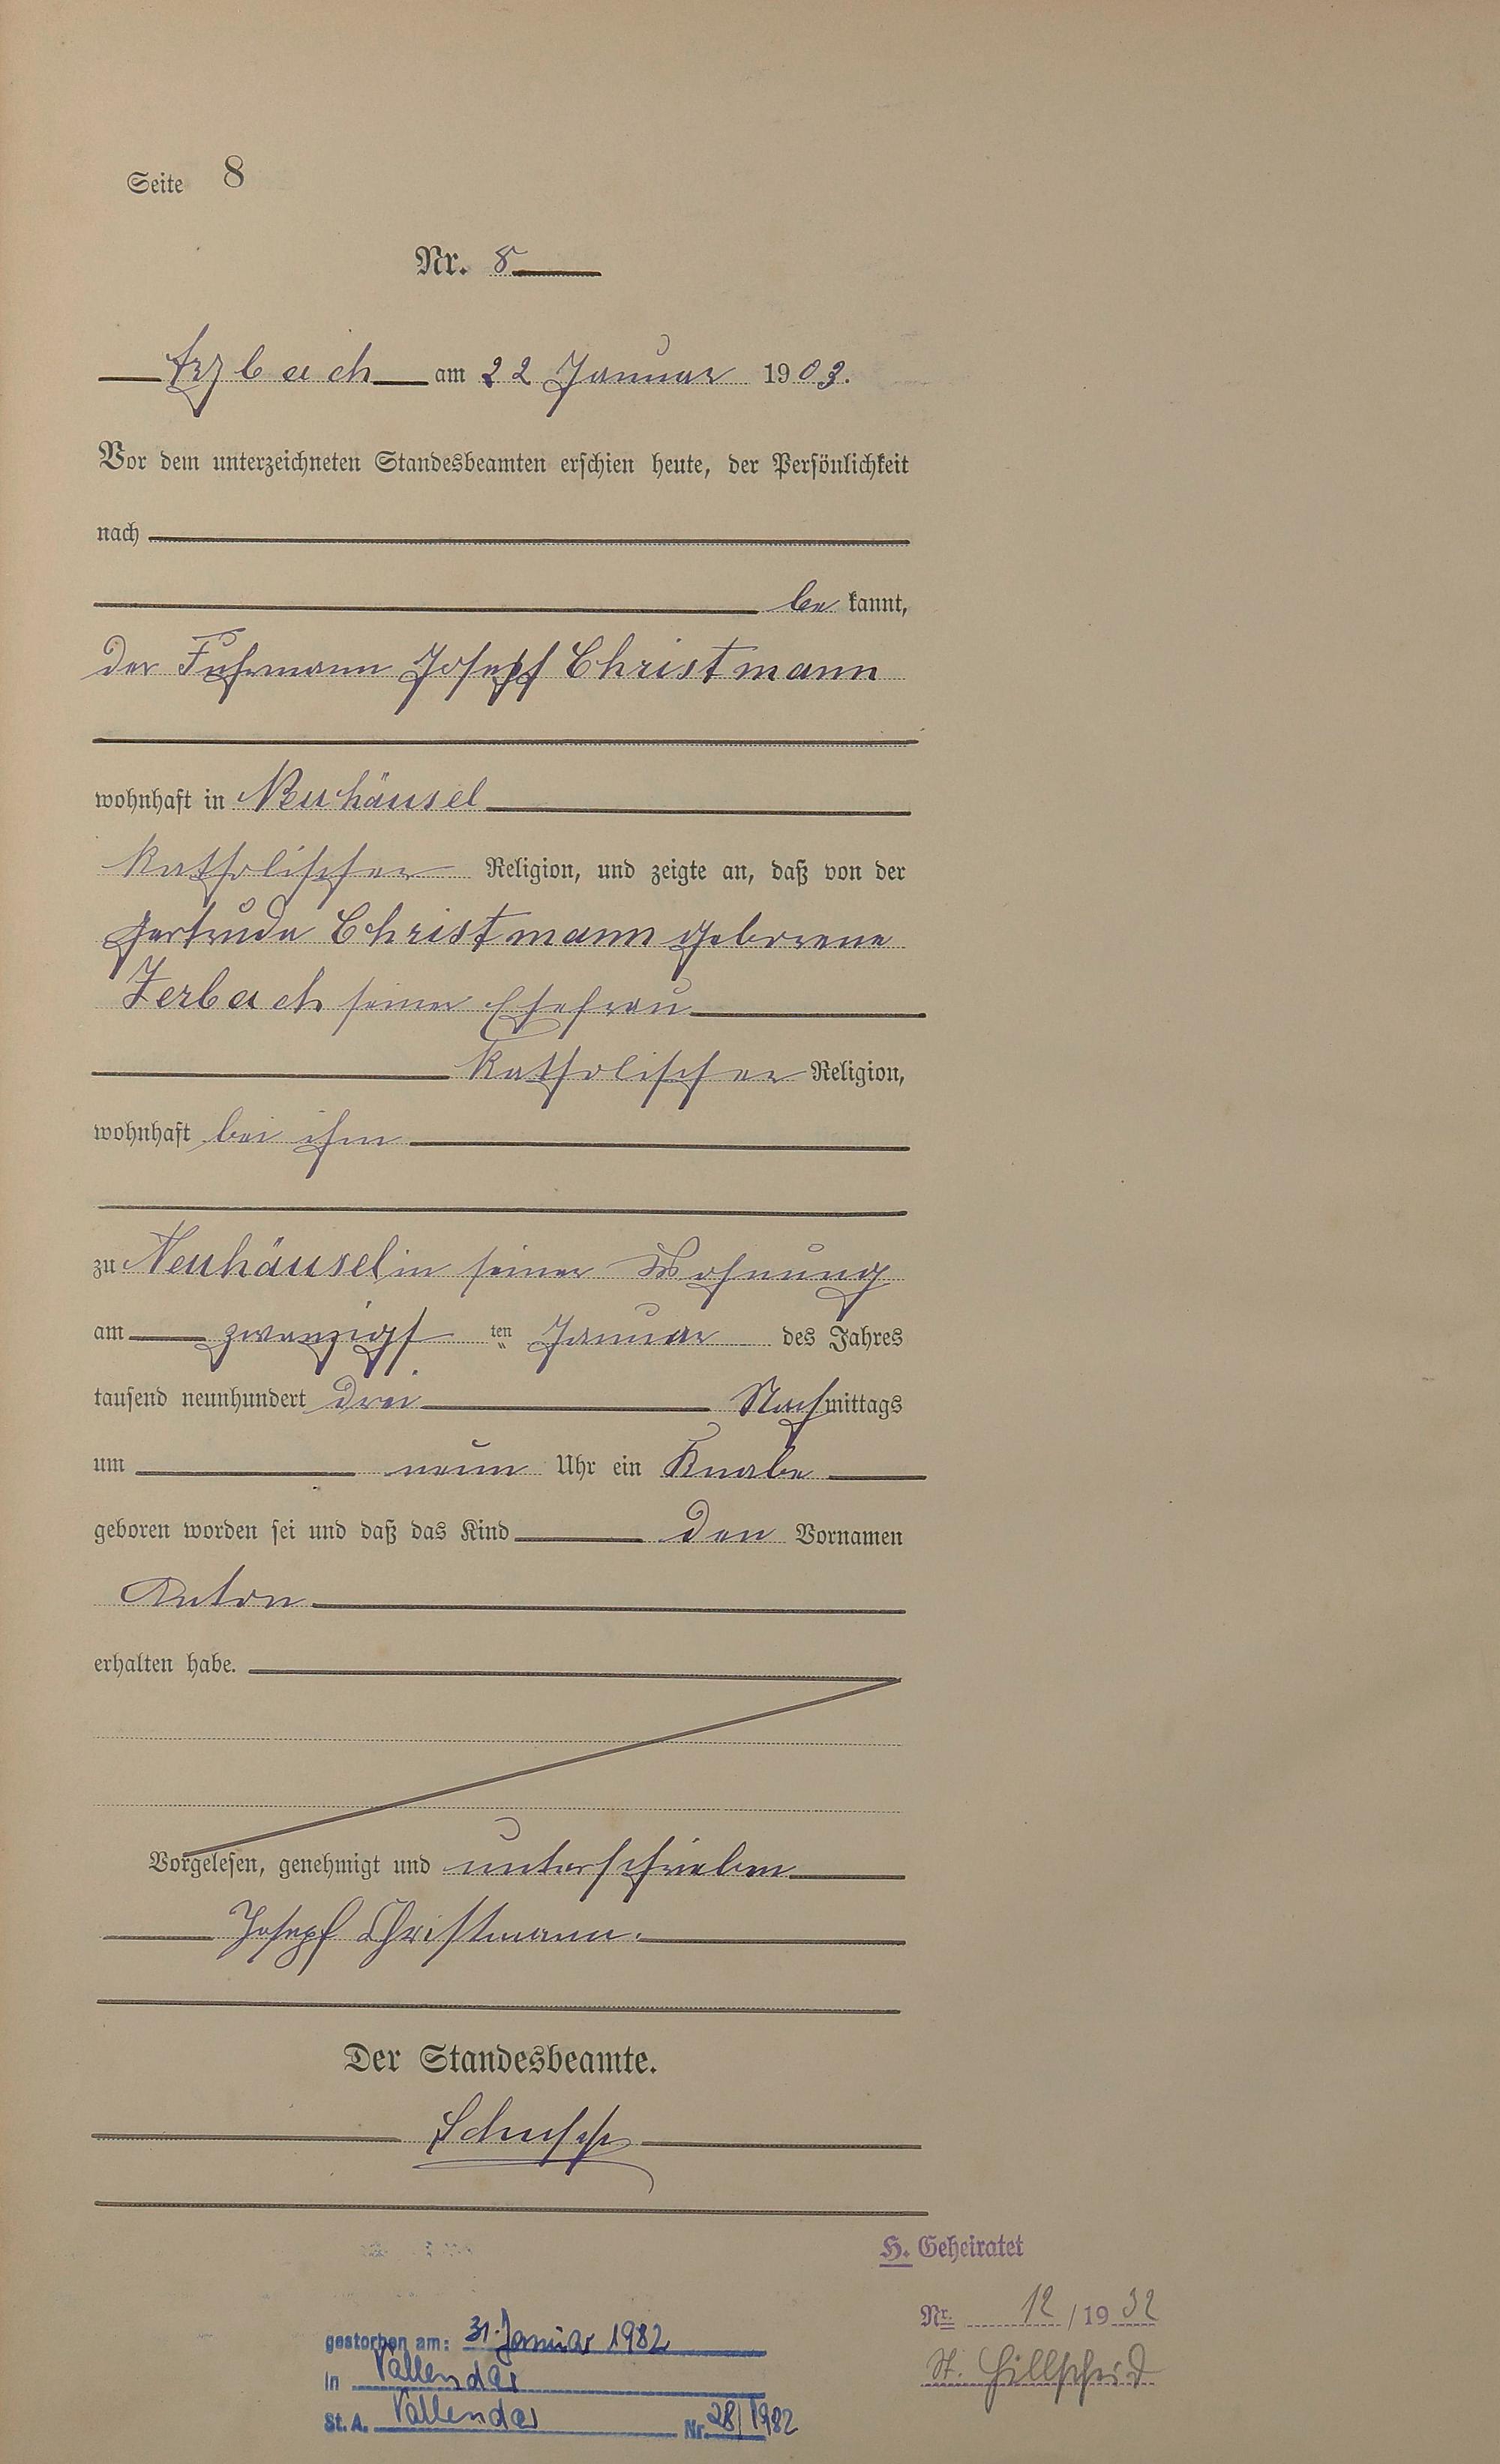 Seite 8
Nr. 8
Arzbach am 22 Januar 1903.
Vor dem unterzeichneten Standesbeamten erschien heute, der Persönlichkeit
nach
be kannt,
der Fuhrmann Joseph Christmann
wohnhaft in Neuhäusel
katholischer Religion, und zeigte an, daß von der
Gertrude Christmann geborene
Zerbach seiner Ehefrau
katholischer Religion,
wohnhaft bei ihm
zu Neuhäusel in seiner Wohnung
am zwanzigs ten Januar des Jahres
tausend neunhundert drei Nachmittags
um neun Uhr ein Knabe
geboren worden sei und daß das Kind den Vornamen
Anton
erhalten habe.
Vorgelesen, genehmigt und unterschrieben
Joseph Christmann.
Der Standesbeamte.
Schupp
H. Geheiratet
Nr. 12 / 19 32
St. Hillscheid
gestorben am: 31. Januar 1982
in Vallendar
St. A. Vallendar Nr. 28/1982